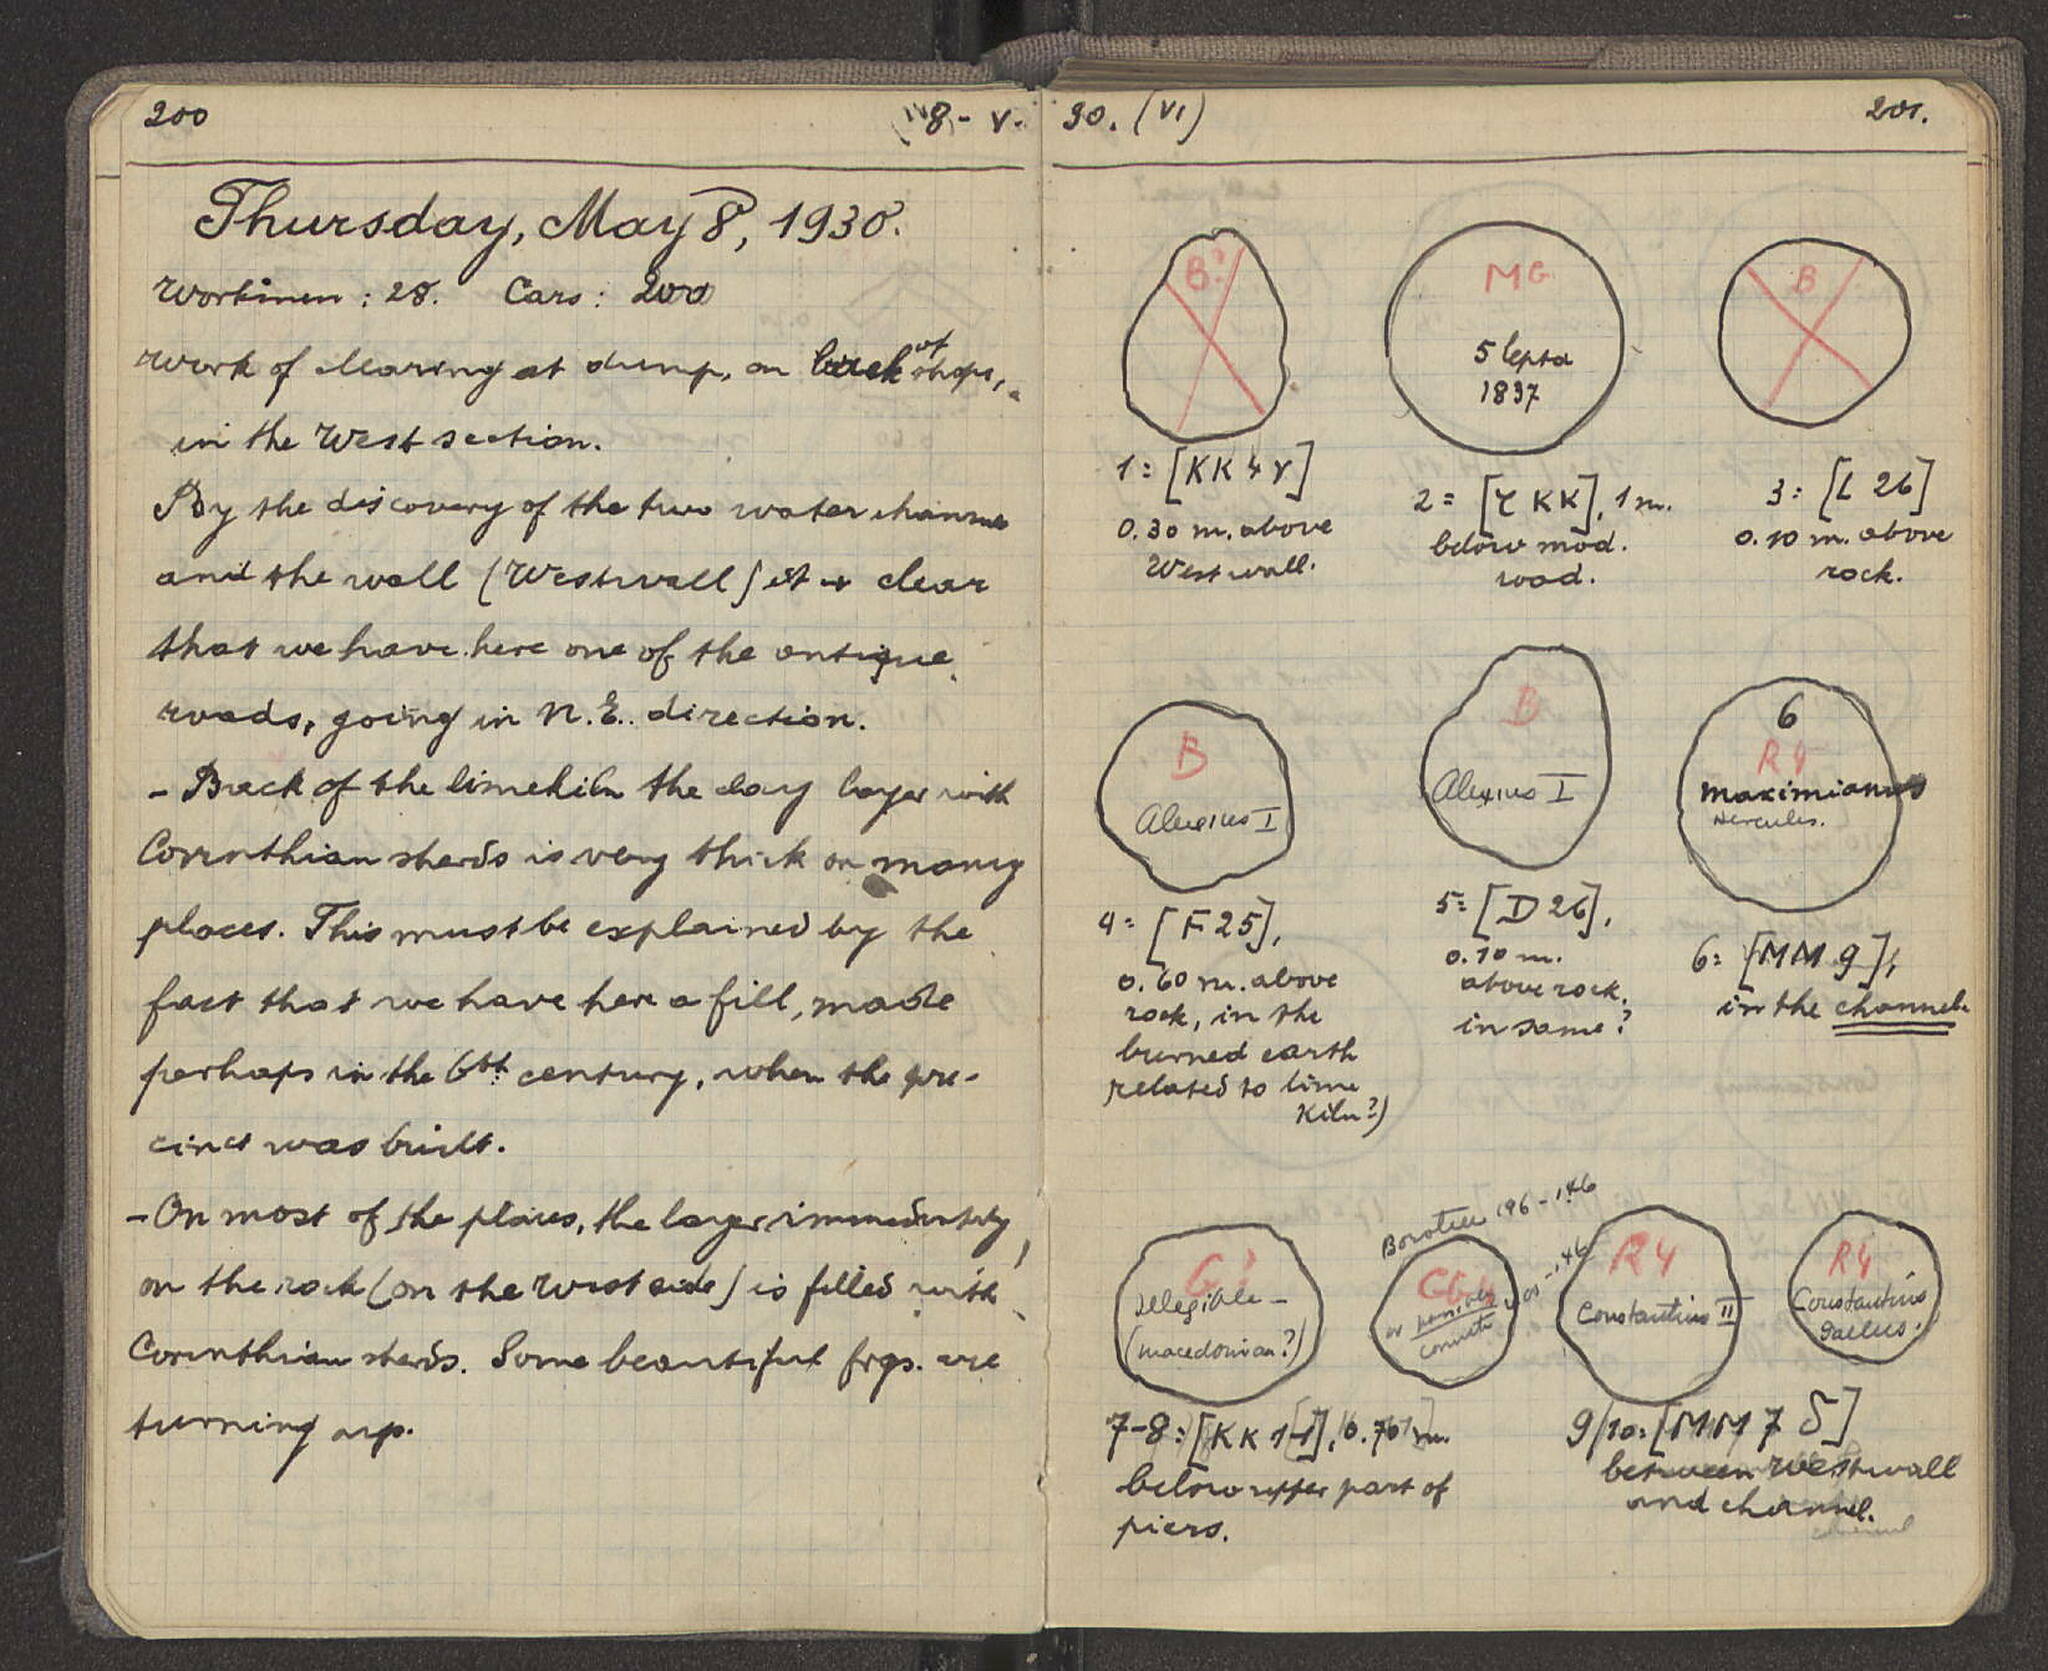 200
8 - V.
Thursday, May 8, 1930.
Workmen : 28. Cars : 200
Work of clearing at dump, on back of shops,
in the West section.
By the discovery of the two water channels
and the wall (Westwall) it is clear
that we have here one of the antique
roads, going in N.E. direction.
- Back of the limekiln the clay layer with
Corinthian sherds is very thick on many
places. This must be explained by the
fact that we have here a fill, made
perhaps in the 6th century, when the pre-
cinct was built.
- On most of the places, the layer immediately
on the rock (on the West side) is filled with
Corinthian sherds. Some beautiful frgs. are
turning up.
30. (VI)
201.
B?
MG
5 lepta
1837
B
1 = [KK 4 γ]
0.30 m. above
West wall.
2 = [ KK], 1 m.
below mod.
road.
3 : [L 26]
0.10 m. above
rock.
B
Alexius I
B
Alexius I
6
R4
Maximianus
Hercules.
4 = [F 25],
0.60 m. above
rock, in the
burned earth
related to lime
Kiln?)
5 = [D 26],
0.10 m.
above rock.
in same?
6 : [MM 9],
in the channel.
G?
Illegible -
(Macedonian?)
Boeotia 196 - 146
or possibly
- 146
R4
Constantius II
R4
Constantius
Gallus.
7-8 : [KK 11], 0.70 m.
below upper part of
piers.
9/10 : [MM 7 δ]
between Westwall
and channel.
channel